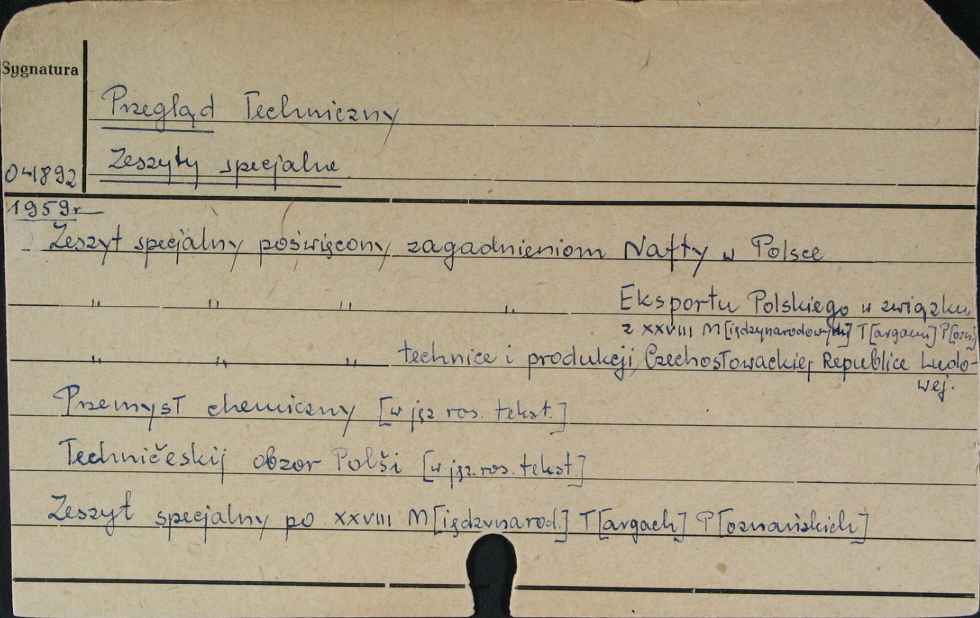 Sygnatura
Przegląd Techniczny
041892 Zeszyty specjalne
1959r
Zeszyt specjalny poświęcony zagadnieniom Nafty w Polsce
" " " " Eksportu Polskiego w związku
z XXVIII M[iędzynarodowych] T[argach] P[ozn]
" " " technice i produkcji Czechosłowackiej Republice Ludo-
wej.
Przemysł chemiczny [w jęz ros. tekst.]
Techničeskij obzor Polši [w jęz. ros. tekst]
Zeszyt specjalny po XXVIII M[iędzynarod.] T[argach] P[oznańskich]